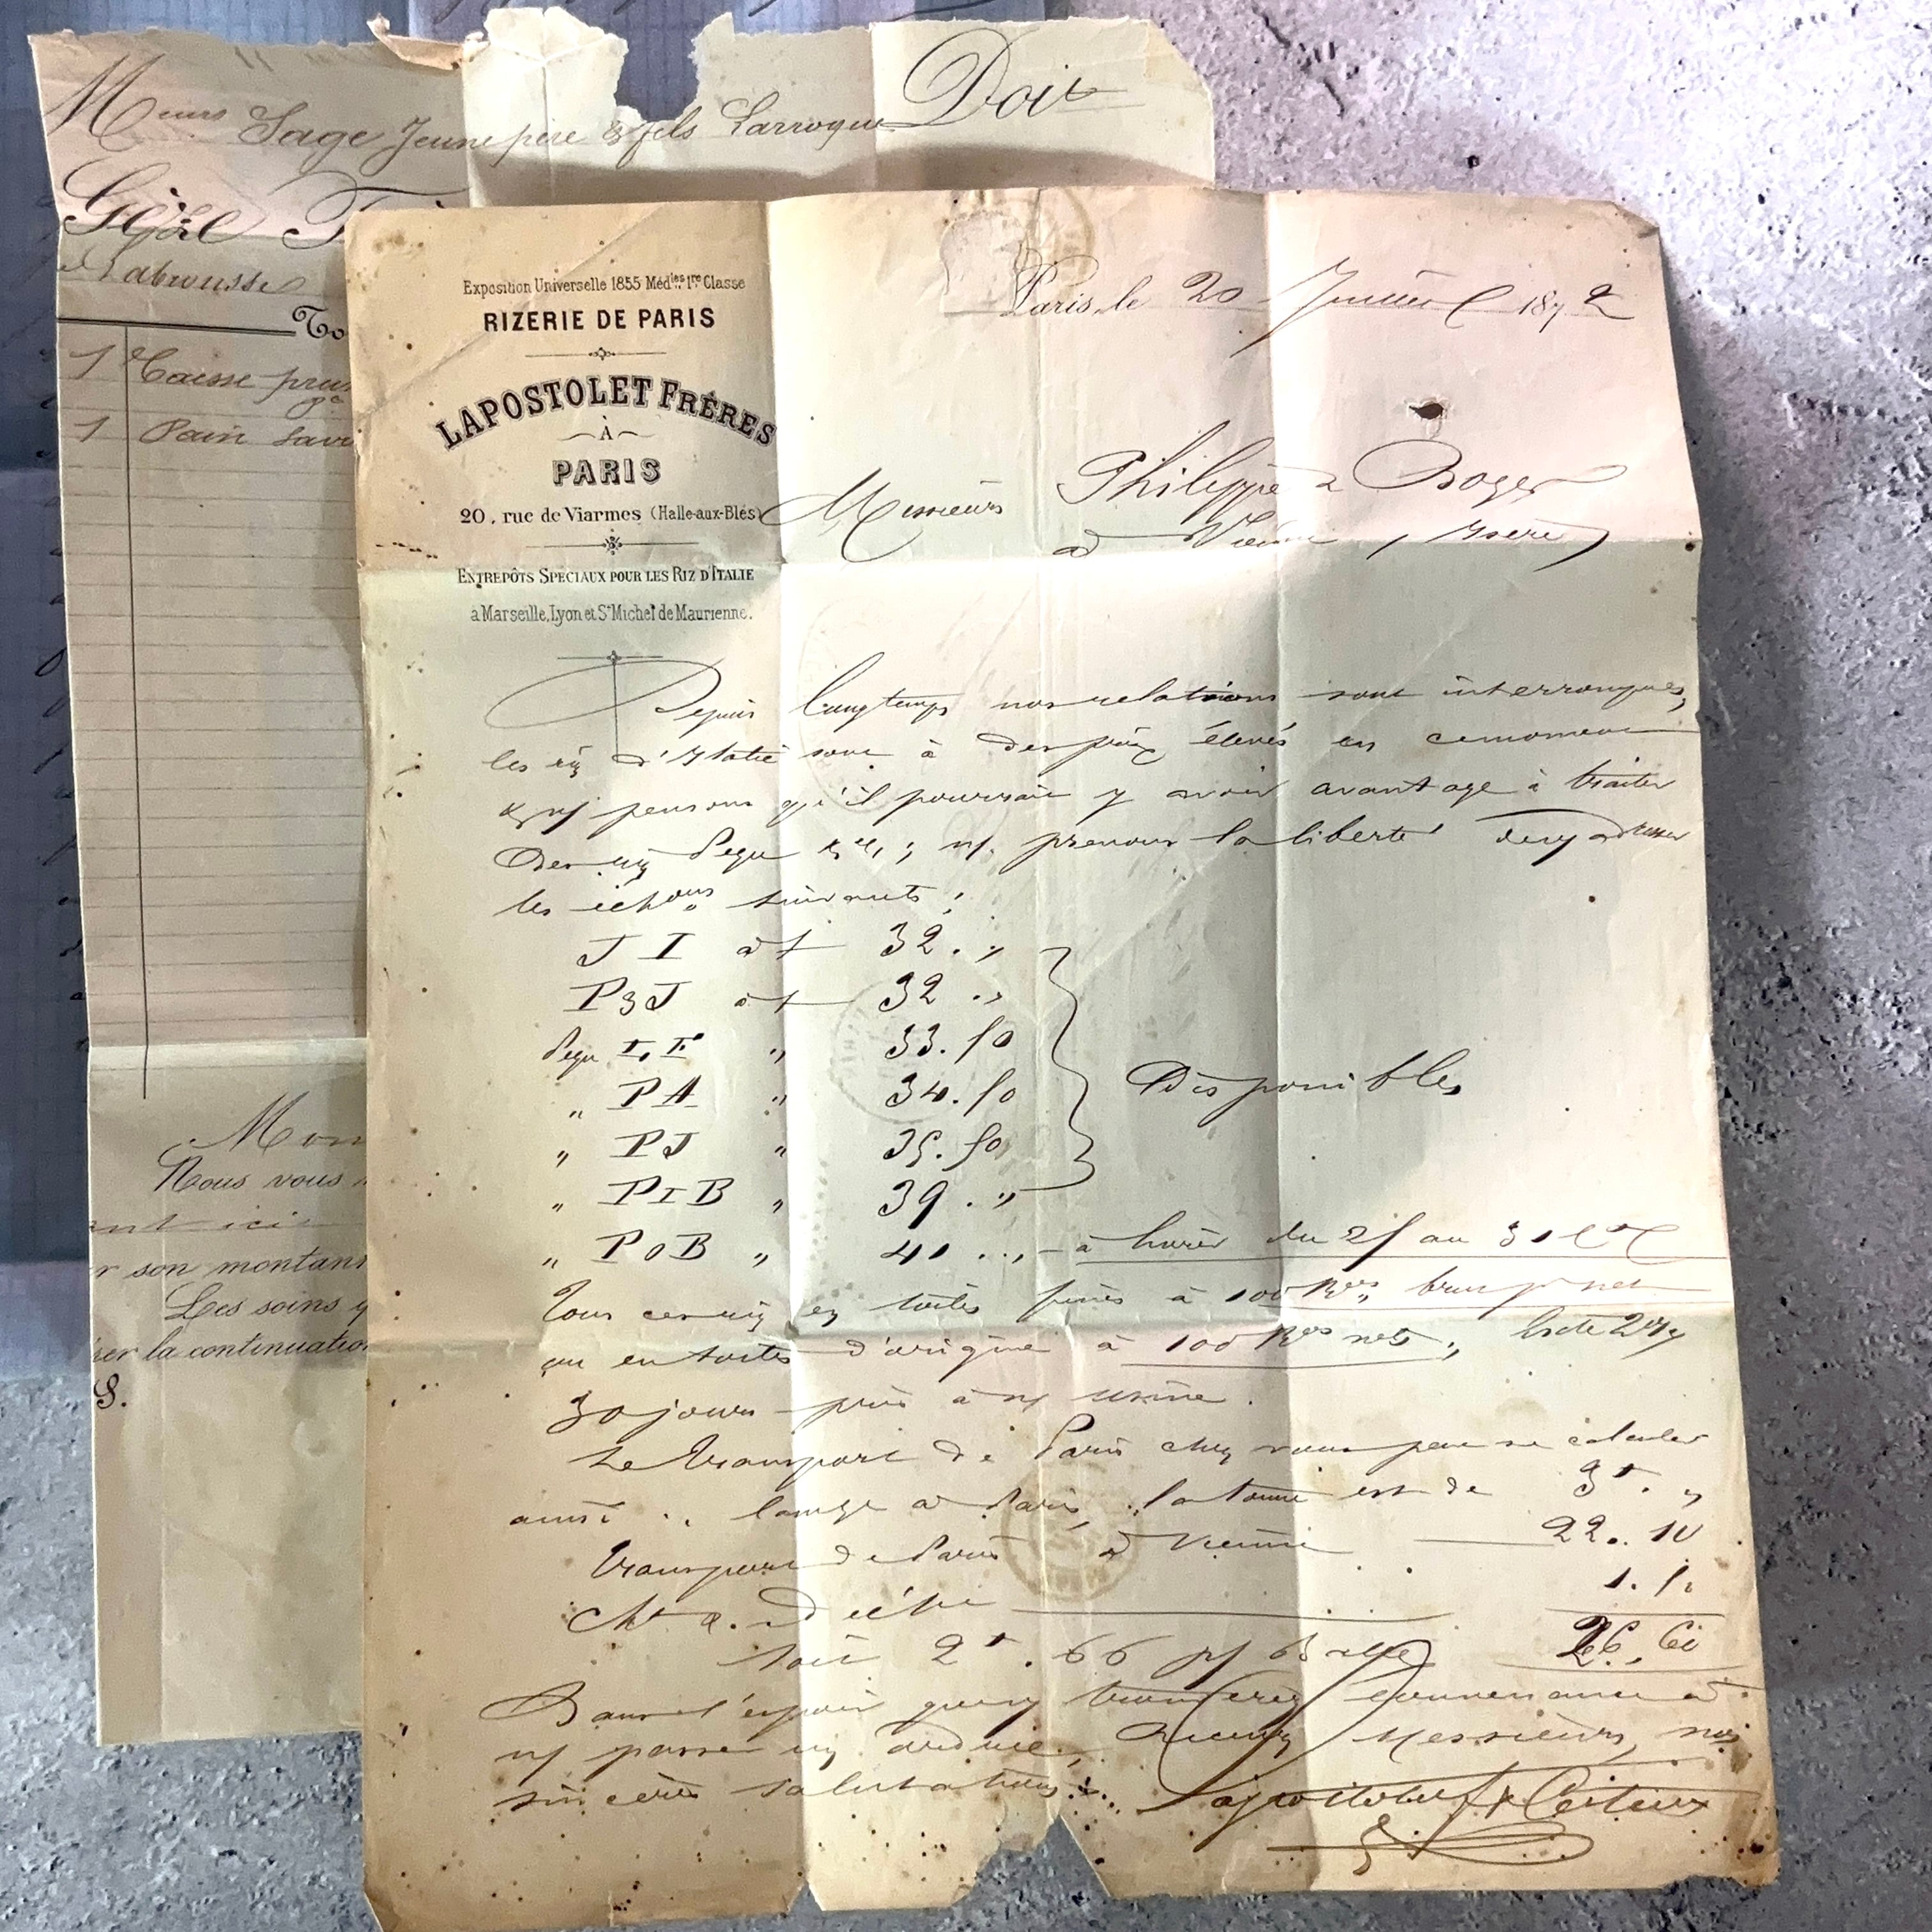 Doit
M eurs Sage Jeune père & fils Larroque
Gèze F
Labrousse
To
1 Caisse prun
1 Pain sav
Mon
Nous vous
ant ici
r son montant
Les soins q
rer la continuation
S.
Exposition Universelle 1855 Médles 1re Classe
RIZERIE DE PARIS
LAPOSTOLET FRÈRES
À
PARIS
20, rue de Viarmes (Halle-aux-Blés)
ENTREPÔTS SPÉCIAUX POUR LES RIZ D'ITALIE
à Marseille, Lyon et St Michel de Maurienne.
Paris, le 20 Juillet 1872
Messieurs Philippe & Boger
à Vienne, Isère
Depuis longtemps nos relations sont interrompues,
les riz d'Italie sont à des prix élevés en ce moment
& ns pensons qu'il pourrait y avoir avantage à traiter
des riz Pegu ; ns prenons la liberté de vs adresser
les échons suivants :
J I à f 32 . "
P3J à f 32 . "
Pegu I. F " 33.50
" PA " 34.50
" PJ " 35.50
" PIB " 39 . "
Disponibles
" POB " 41 .. à livrer du 25 au 31 ct
Tous ces riz en toiles à 100 Kos brut pr net
ou en toiles d'origine à 100 Kos nets,
30 jours pris à ns usine.
Le transport de Paris chez vous peut se calculer
ainsi : à Paris, la tonne est de 3f. "
transport de Paris à Vienne 22.10
1.50
26.60
soit 2f.66 pr balle
Dans l'espoir que vs trouverez convenance à
ns passer un ordre, Recevez Messieurs, nos
sincères salutations.
Lapostolet